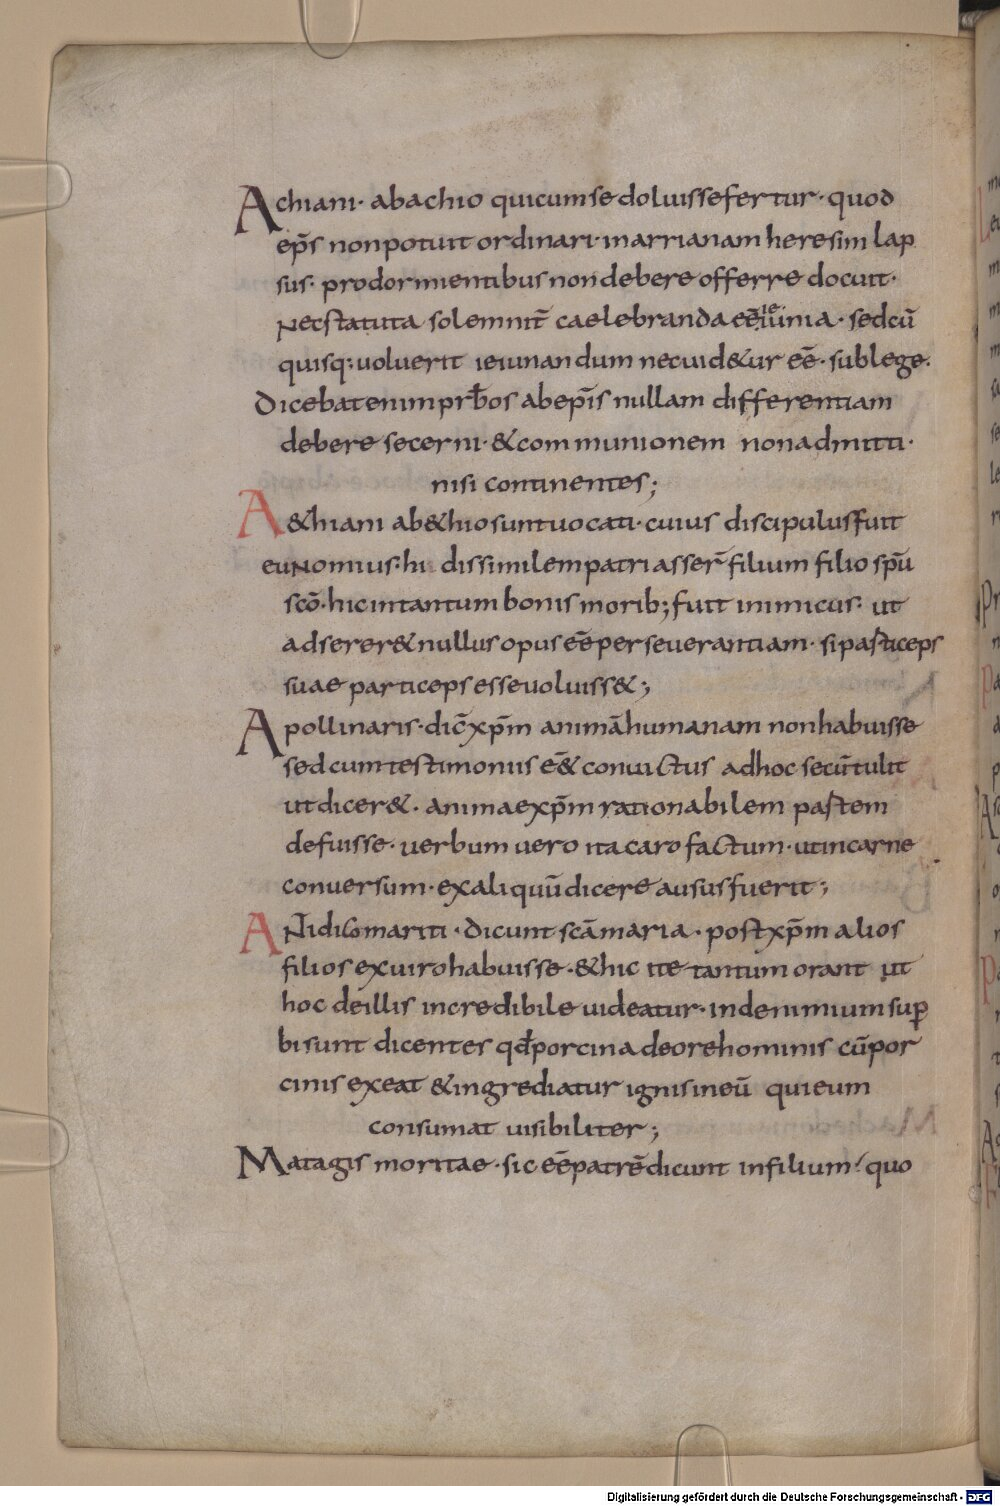 Achiani· abachio quicumse doluissefertur· quod
ep̄s nonpotuit ordinari· inarrianam heresim lap
sus· prodormientibus non debere offerre docuit·
Necstatuta solemnit̄ caelebranda eē ieiunia· sedcū
quisq; uoluerit ieiunandum necuid&ur eē· sublege·
Dicebatenim prb̄os abep̄is nullam differentiam
debere secerni· &communionem nonadmitti·
nisi continentes;
A&hiani ab&hio suntuocati· cuius discipulusfuit
euNomius· hi dissimilempatri asser̄ filium filio sp̄u
scō· hicintantum bonis morib; fuit inimicus· ut
adserer& nullus opus eē perseuerantiam· sipasticeps
suae particeps esseuoluiss&;
Apollinaris· dic̄ xp̄m animā humanam nonhabuisse
sedcumtestimoniis ē& conuictus adhoc secū tulit
utdicer&· animaexp̄m rationabilem pastem
defuisse· uerbum uero ita caro factum· utincarne
conuersum· exaliquū dicere aususfuerit;
ANidicomariti· dicunt scāmaria· postxp̄m alios
filios exuirohabuisse· &hic ite tantum orant ut
hoc deillis incredibile uideatur· indenimium sup̄
bisunt dicentes qd̄porcina deorehominis cūpor
cinis exeat &ingrediatur ignisineū quieum
consumat uisibiliter;
Matagis moritae· sic eēpatrē dicunt infilium quo
Digitalisierung gefördert durch die Deutsche Forschungsgemeinschaft - DFG